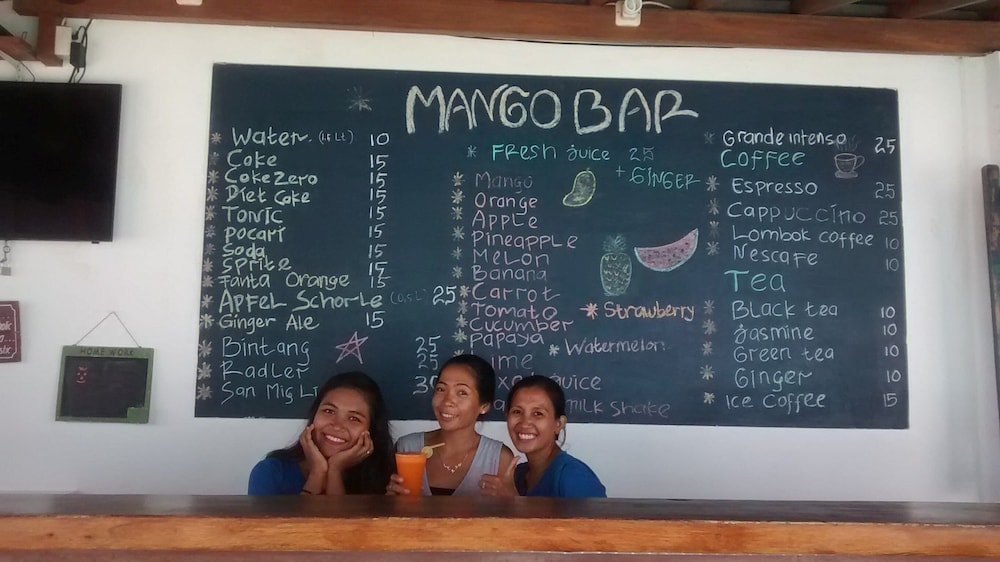 MANGO BAR
* Water (1.5 Lt.) 10
* Coke 15
* Coke Zero 15
* Diet Coke 15
* TONIC 15
* Pocari 15
* Soda 15
* Sprite 15
* Fanta Orange 15
* APFEL Schorle (0,5 L) 25
* Ginger Ale 15
* Bintang 25
* Radler 25
* San Mig Li 30
* FRESH Juice 25
+ GINGER
* Mango
* Orange
* APPLE
* Pineapple
* MeLon
* Banana
* Carrot
* Tomato
* Strawberry
* Cucumber
* Papaya
* Watermelon
Lime
Juice
MILK SHAKE
* Grande intenso 25
Coffee
* Espresso 25
* Cappuccino 25
* Lombok coffee 10
* Nescafe 10
Tea
* Black tea 10
* Jasmine 10
* Green tea 10
* Ginger 10
* Ice Coffee 15
HOME WORK